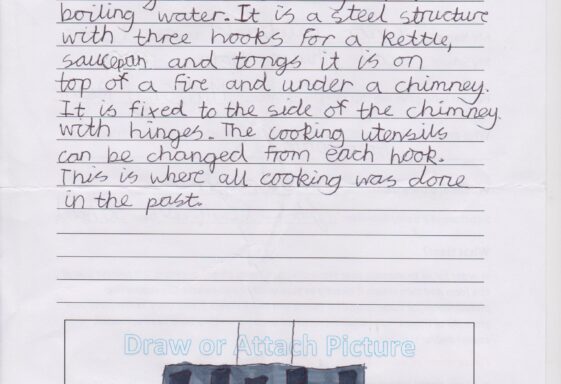 boiling water. It is a steel structure
with three hooks for a kettle,
saucepan and tongs it is on
top of a fire and under a chimney.
It is fixed to the side of the chimney.
with hinges. The cooking utensils
can be changed from each hook.
This is where all cooking was done
in the past.
Draw or Attach Picture